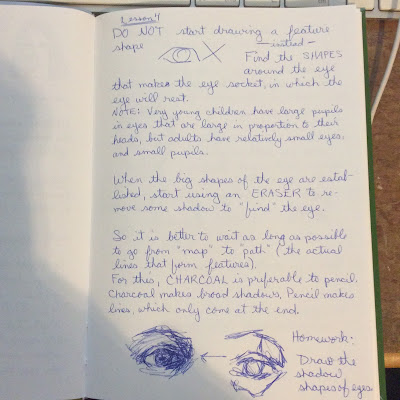 Lesson 1
DO NOT start drawing a feature
shape
— instead —
Find the SHAPES
around the eye
that makes the eye socket, in which the
eye will rest.
NOTE: Very young children have large pupils
in eyes that are large in proportion to their
heads, but adults have relatively small eyes,
and small pupils.
When the big shapes of the eye are estab-
lished, start using an "ERASER to re-
move some shadow to "find" the eye.
So it is better to wait as long as possible
to go from "map" to "path" (the actual
lines that form features).
For this, CHARCOAL is preferable to pencil.
Charcoal makes broad shadows, Pencil makes
lines, which only come at the end.
Homework:
Draw the
shadow
shapes of eyes